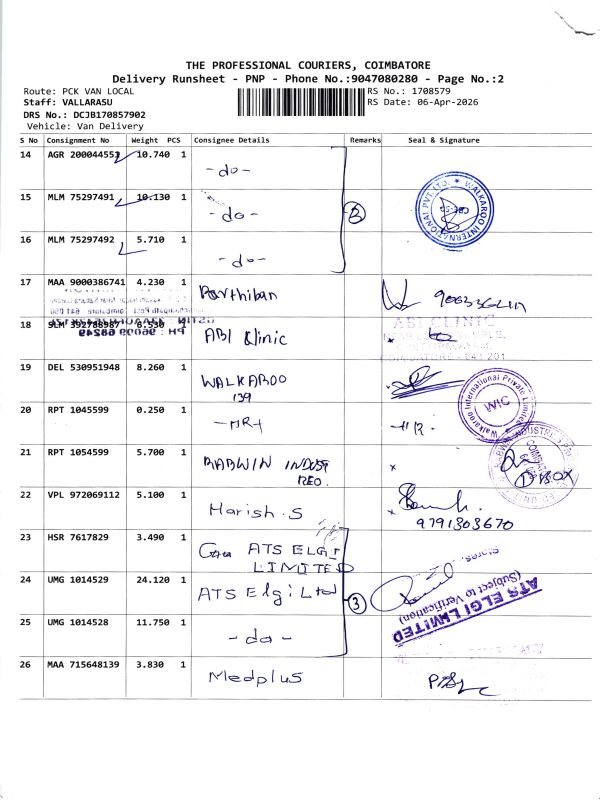 THE PROFESSIONAL COURIERS, COIMBATORE
Delivery Runsheet - PNP - Phone No.:9047080280 - Page No.:2
Route: PCK VAN LOCAL
RS No.: 1708579
Staff: VALLARASU
RS Date: 06-Apr-2026
DRS No.: DCJB170857902
Vehicle: Van Delivery
S No Consignment No Weight PCS Consignee Details Remarks Seal & Signature
14 AGR 200044553 10.740 1 - do -
15 MLM 75297491 10.130 1 - do - 3 WALKAROO INTERNATIONAL PVT LTD.
16 MLM 75297492 5.710 1 - do -
17 MAA 9000386741 4.230 1 Parthiban
18 SLM 392788987 6.550 1 ABI Clinic ABI CLINIC
COIMBATORE - 641 201
PH : 96009 68249
19 DEL 530951948 8.260 1 WALKAROO
139
Walkaroo International Private Limited WIC
20 RPT 1045599 0.250 1
21 RPT 1054599 5.700 1
22 VPL 972069112 5.100 1 Harish.S 9791303670
23 HSR 7617829 3.490 1 ATS ELGI
LIMITED
24 UMG 1014529 24.120 1 ATS Elgi Ltd 3 ATS ELGI LIMITED
(Subject to Verification)
Stores
25 UMG 1014528 11.750 1 - do -
26 MAA 715648139 3.830 1 Medplus